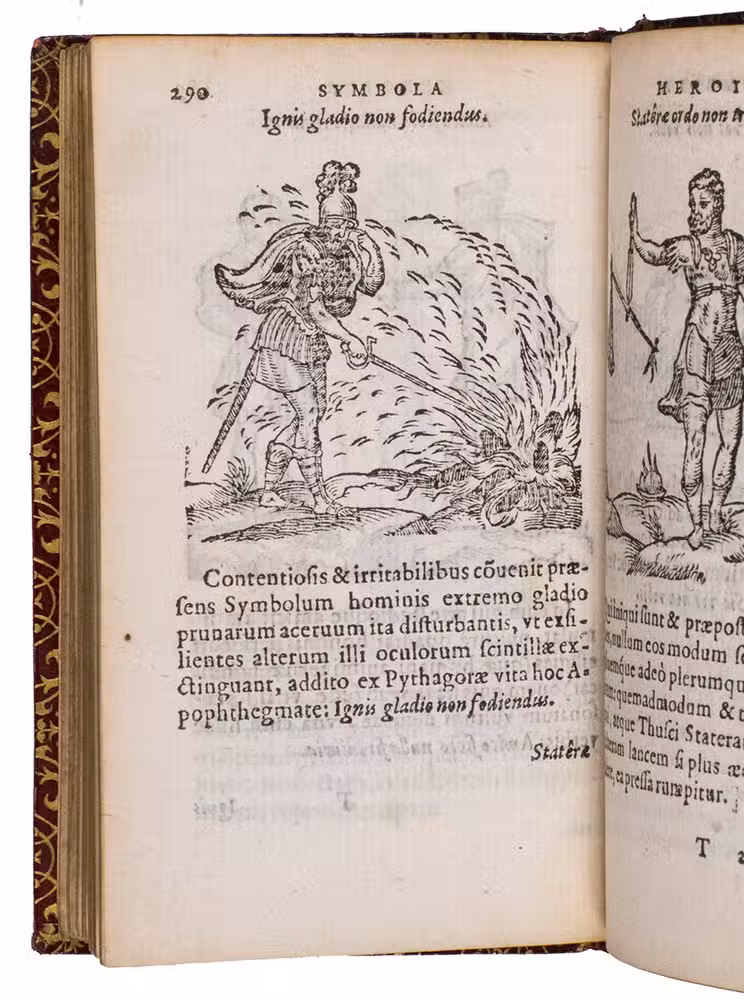 290
SYMBOLA
Ignis gladio non fodiendus.
Contentiosis & irritabilibus cōuenit præ-
sens Symbolum hominis extremo gladio
prunarum aceruum ita disturbantis, vt exsi-
lientes alterum illi oculorum scintillæ ex-
ctinguant, addito ex Pythagoræ vita hoc A-
pophthegmate: Ignis gladio non fodiendus.
Statêræ
HEROI
Statêræ ordo non
iniqui sunt & præpost
nullum eos modum
adeò plerumqu
quemadmodum & t
atque Thusci Statera
lancem si plus æ
ea pressa rumpitur.
T 2